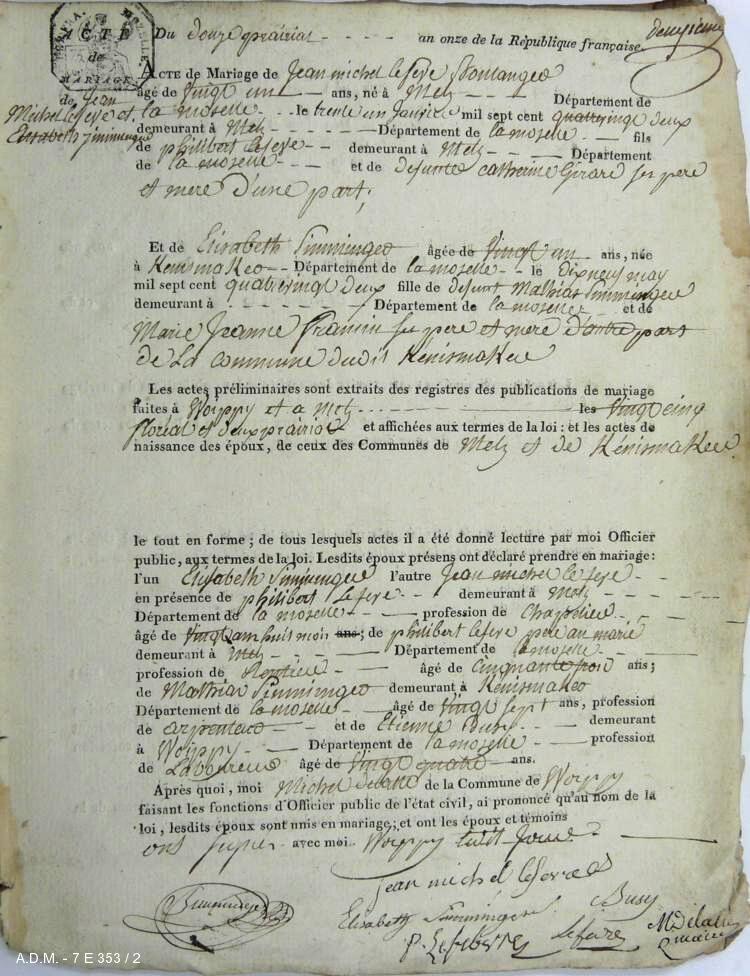 ACTE
de
MARIAGE
de Jean
Michel Lefeve et
Elisabeth Simminger
deuxieme
Du douze prairial an onze de la République française.
ACTE de Mariage de Jean michel Lefeve Boulanger
âgé de vingt un ans, né à Metz Département de
la moselle le trente un Janvier mil sept cent quatrevingt deux
demeurant à Metz Département de la moselle fils
de philibert Lefeve demeurant à Metz Département
de la moselle et de defunte catherine Girard ses pere
et mere d'une part;
Et de Elisabeth Simminger âgée de vingt un ans, née
à Kenismaker Département de la moselle le dix neuf may
mil sept cent quatrevingt deux fille de defunt Mathias Simminger
demeurant à Département de la moselle et de
Marie Jeanne ses pere et mere d'autre part
de La Commune dudit Kenismaker
Les actes préliminaires sont extraits des registres des publications de mariage
faites à Woippy et a Metz les vingt cinq
floreal et deux prairial et affichées aux termes de la loi : et les actes de
naissance des époux, de ceux des Communes de Metz et de Kénismaker.
le tout en forme ; de tous lesquels actes il a été donné lecture par moi Officier
public, aux termes de la loi. Lesdits époux présens ont déclaré prendre en mariage :
l'un Elisabeth Simminger l'autre Jean michel lefeve
en présence de philibert Lefeve demeurant à Metz
Département de la moselle profession de Chapelier
âgé de vingt huit mois ans ; de philibert lefeve pere au marié
demeurant à Metz Département de la moselle
profession de Rentier âgé de cinquante trois ans ;
de Mathias Simminger demeurant à Kénismaker
Département de la moselle âgé de vingt sept ans, profession
de carpenter et de Etienne Busy demeurant
à Woippy Département de la moselle profession
de Laboureur âgé de vingt quatre ans.
Après quoi, moi Michel de la Commune de Woippy
faisant les fonctions d'Officier public de l'état civil, ai prononcé qu'au nom de la
loi, lesdits époux sont unis en mariage ; et ont les époux et témoins
ont signés avec moi Woippy ledit Jour.
jean michel lefevre
Simminger
Elisabeth Simminger
Busy
P. Lefebvre
Lefevre
maire
A.D.M. - 7 E 353 / 2